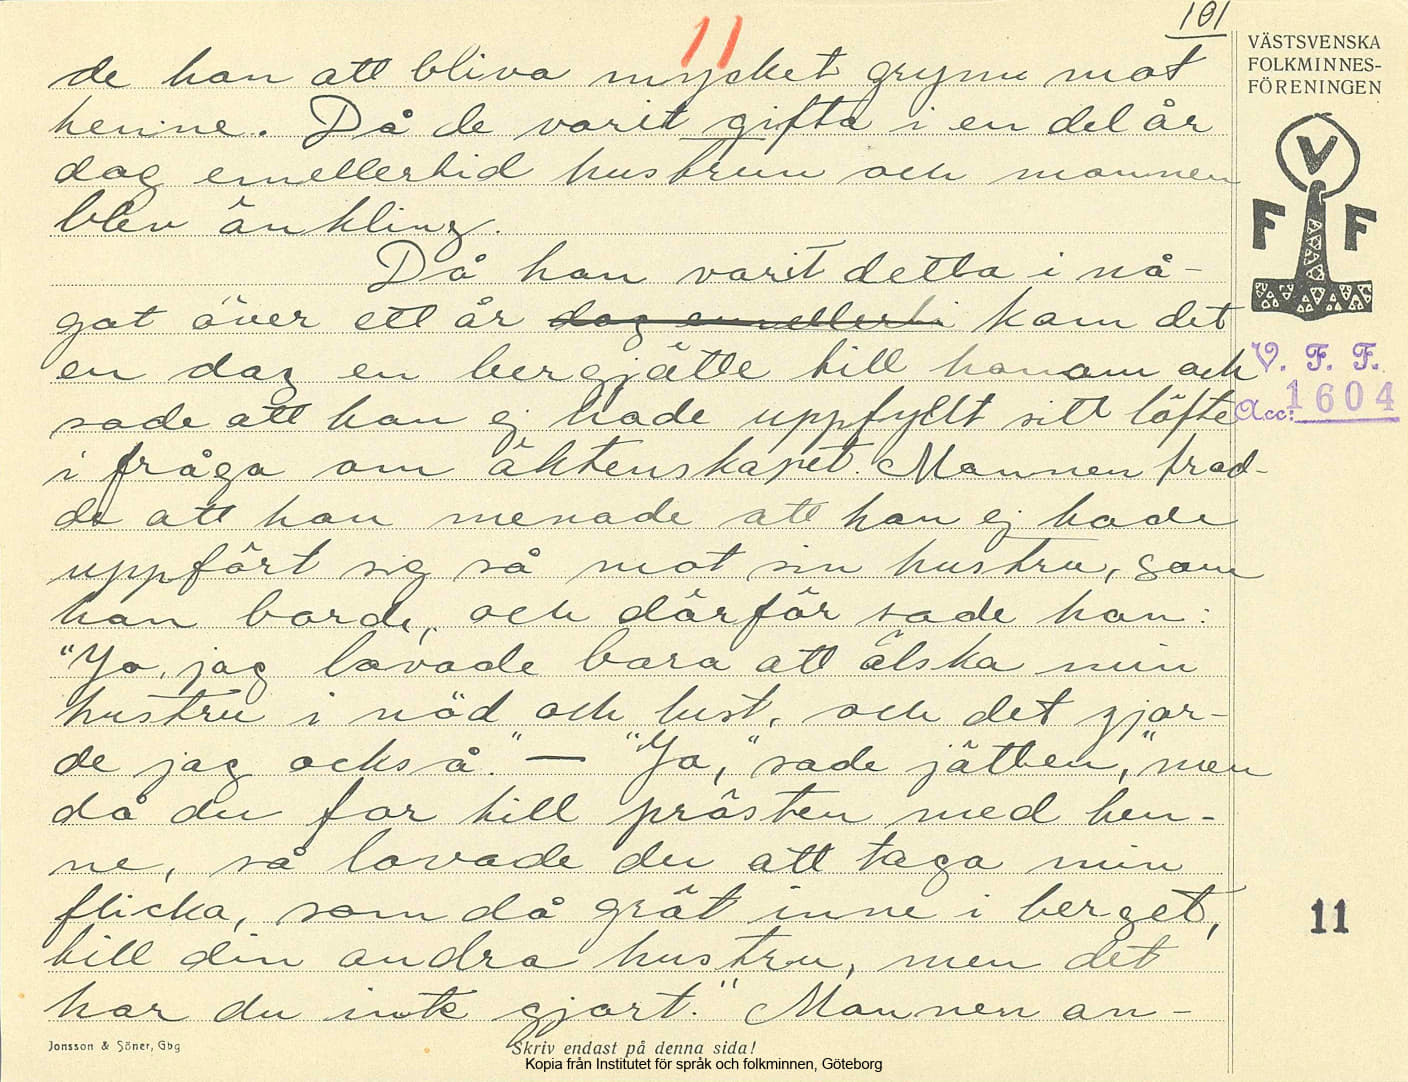 101
11
VÄSTSVENSKA
FOLKMINNES-
FÖRENINGEN
V
F F
de han att bliva mycket grym mot
henne. Då de varit gifta i en del år
dog emellertid hustrun och mannen
blev änkling.
Då han varit detta i nå-
got över ett år dog emellerti kom det
en dag en bergjätte till honom och
sade att han ej hade uppfyllt sitt löfte
i fråga om äktenskapet. Mannen trod-
de att han menade att han ej hade
uppfört sig så mot sin hustru, som
han borde, och därför sade han:
"Jo, jag lovade bara att älska min
hustru i nöd och lust, och det gjor-
de jag också." — "Jo," sade jätten, "men
då du for till prästen med hen-
ne, så lovade du att taga min
flicka, som då grät inne i berget,
till din andra hustru, men det
har du inte gjort." Mannen an-
V. F. F.
Acc: 1604
11
Jonsson & Söner, Gbg
Skriv endast på denna sida!
Kopia från Institutet för språk och folkminnen, Göteborg